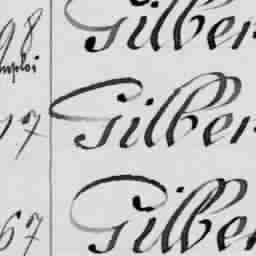 98 Gilber
mploi
17 Gilber
67 Gilber